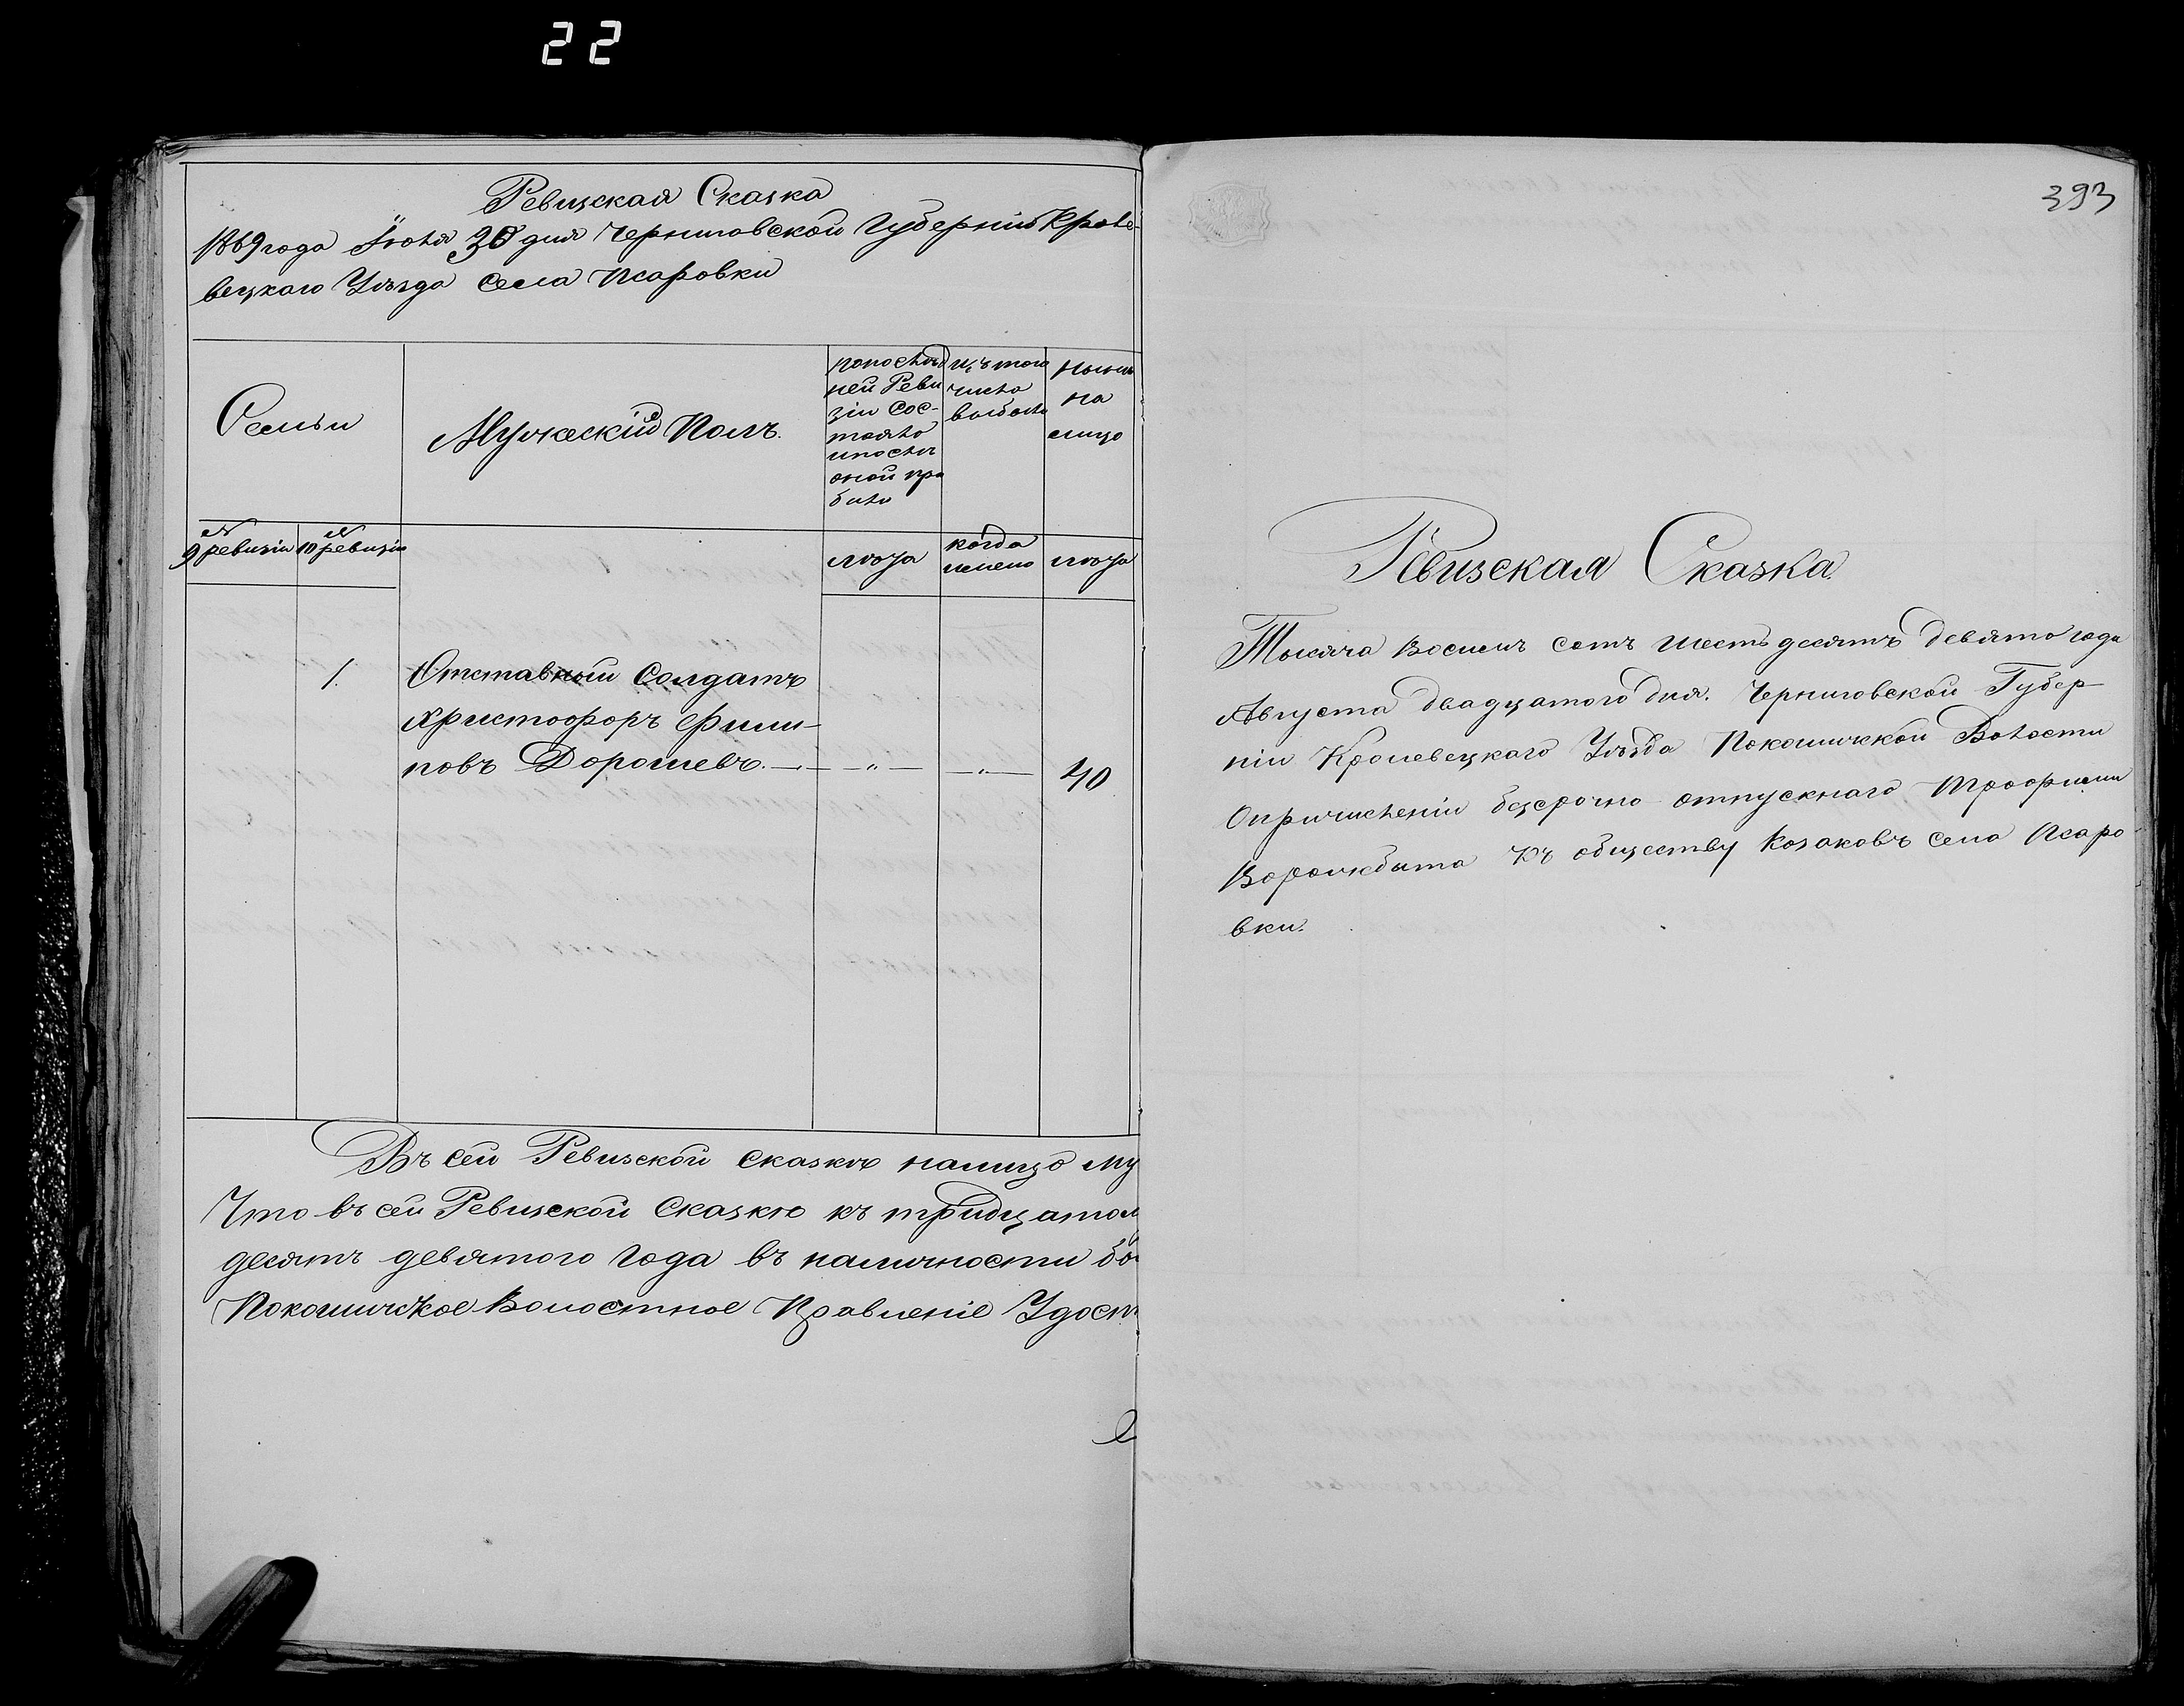 22
Ревизская Сказка
1869 года Іюня 30 дня Черниговской Губерніи Кроле-
вецкаго Уѣзда Села Псаровки
Семьи
Мужескій Полъ.
По послѣд
ней Реви
зіи сос-
тояло
и послѣ
оной при
было
Изъ того
числа
выбыло
Нынѣ
на
лицо
N
9 ревизіи
N
10 ревизіи
лѣта
когда
имено
лѣта
1.
Отставной Солдатъ
Христофоръ Фили-
повъ Дорошевъ. — „ — — „ — 40
Въ сей Ревизской сказкѣ налицо му
Что въ сей Ревизской Сказкѣ къ тридцатом
десятъ девятого года въ наличности бы
Покошичское Волостное Правленіе Удост
393
Ревизская Сказка.
Тысяча восемь сотъ шестьдесятъ девято года
Августа двадцатого дня. Черниговской Губер-
ніи Кролевецкаго Уѣзда Покошичской Волости
О причисленіи безсрочно отпускнаго Трофима
Ворожбита къ обществу Козаковъ села Псаро
вки.